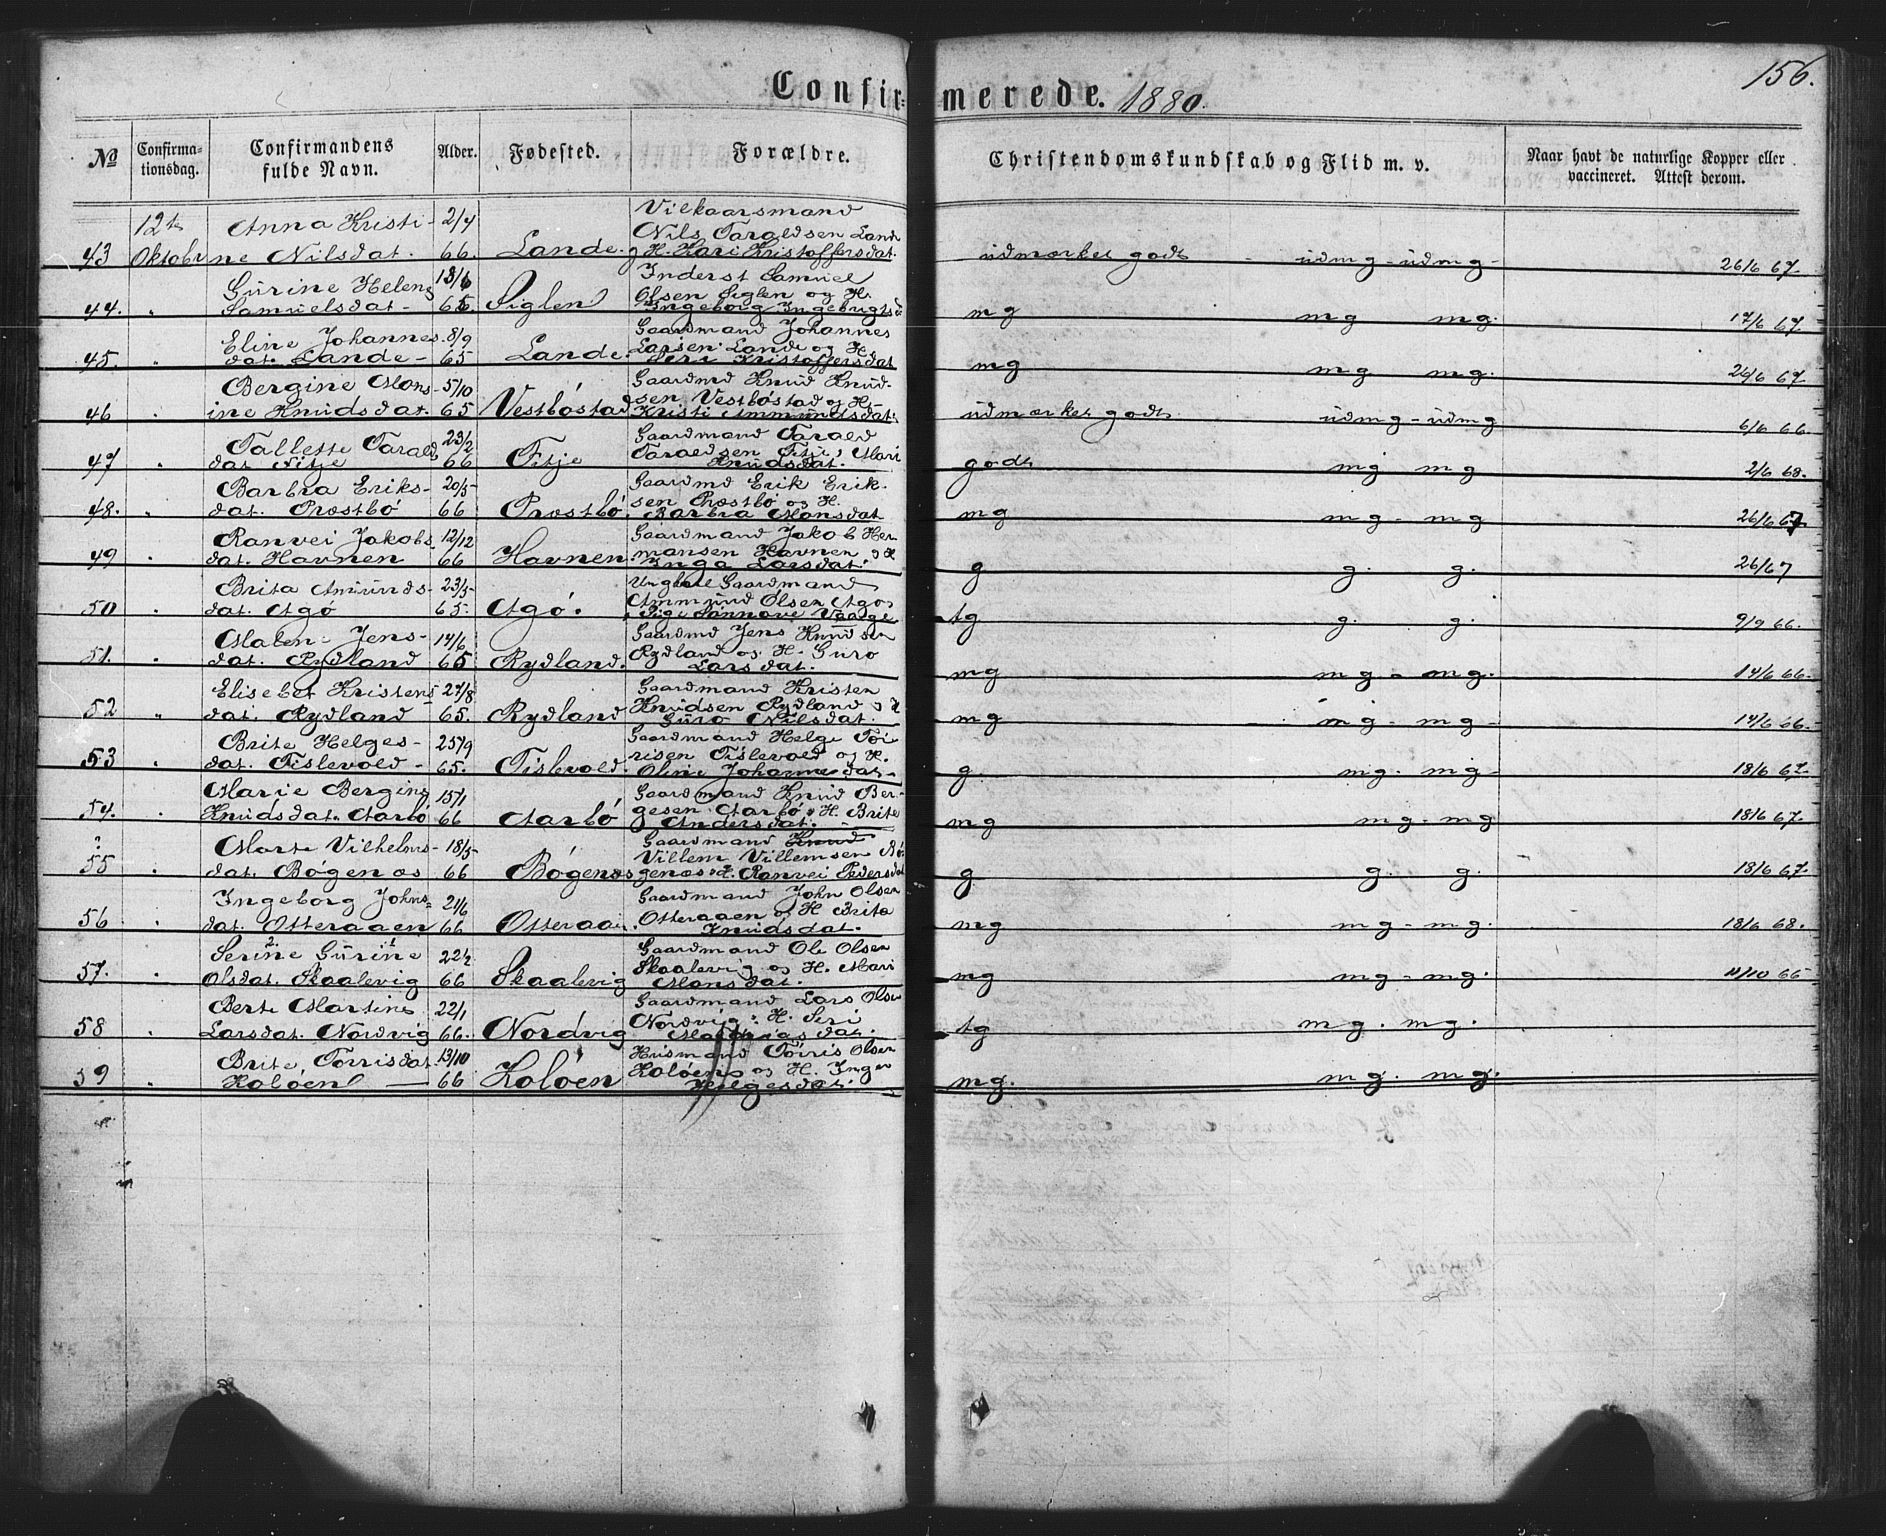 Confir= merede. 1880. 156.
No Confirma-tionsdag. Confirmandens fulde Navn. Alder. Fødested. Forældre. Christendomskundskab og Flid m. v. Naar havt de naturlige Kopper eller vaccineret. Attest derom.
12te Anna Kristi- 2/4 Vilkaarsmand
Nils Taraldsen Lande
43 Oktober ne Nilsdat. 66. Lande. og H. Kari Kristoffersdat. udmærket godt udmg - udmg - 26/6 67.
Gurine Helene 18/6 Inderst Samuel
Olsen Siglen og H.
44. " Samuelsdat - 65 Siglen Ingeborg Ingebrigtsd mg mg mg. 17/6 67.
Eline Johannes- 8/9 Gaardmand Johannes
Larsen Lande og H.
45. " dat. Lande - 65 Lande. Siri Kristoffersdat mg mg mg. 26/6 67.
Bergine Mons- 5/10 Gaardmd Knud Knud-
sen Vestbøstad og H.
46 " ine Knudsdat. 65 Vestbøstad Kristi Ammundsdat. udmærket godt udmg - udmg 6/6 66.
Tallette Taralds 23/2 Gaardmand Tarald
Taraldsen Fitje, Mari
47 " dat Fitje 66 Fitje Knudsdat. godt mg mg 2/6 68.
Barbra Eriks- 20/5 Gaardmd Erik Erik-
sen Præstbø og H.
48. " dat. Præstbø 66 Præstbø. Barbra Monsdat mg mg - mg 26/6 67
Ranvei Jakobs- 12/12 Gaardmand Jakob Her-
mansen Havnen og H
49 " dat. Havnen 66 Havnen. Inga Larsdat. g g. g. 26/67
Brita Amunds- 23/5 Ungkarl Gaardmand
Ammund Olsen Agø,
50 " dat. Agø 65. Agø. Pige Sønnove Vaage tg g. g. 9/9 66.
Malen Jens- 14/6 Gaardmd Jens Knudsen
Rydland og H. Guro
51. " dat. Rydland 65 Rydland. Larsdat. mg mg - mg. 14/6 66.
Elisebet Kristens- 27/8 Gaardmand Kristen
Knudsen Rydland og H
52 " dat. Rydland 65. Rydland Guro Nilsdat. mg mg - mg - 14/6 66.
Brite Helges- 25/9 Gaardmand Helge Tør
risen Tislevold og H.
53 " dat. Tislevold - 65. Tislevold. Oline Johannesdat. g. mg. mg - 18/6 67.
Marie Bergine 15/1 Gaardmand Knud Ber-
gesen Aarbø og H. Brite
54. " Knudsdat. Aarbø 66 Aarbø Andersdat. mg mg - mg 18/6 67.
? Marte Vilhelms- 18/5 Gaardmand Knud
Villem Villemsen Bø-
55 " dat. Bøgenæs 66 Bøgenæs genæs og H. Ranvei Pedersdat g g. g. 18/6 67.
Ingeborg Johns= 21/6 Gaardmand John Olsen
Otteraaen og H Brita
56 " dat. Otteraaen 66 Otteraaen. Knudsdat. mg mg - mg. 18/6 68.
2. 1.
Serine Gurine 22/2 Gaardmand Ole Olsen
Skaalevig og H. Mari
57. " Olsdat. Skaalevig 66 Skaalevig Monsdat. mg mg - mg. 11/10 66
Berte Martine 22/1 Gaardmand Lars Olsen
Nordvig og H. Siri
58 " Larsdat. Nordvig 66. Nordvig Mathiasdat. tg mg. mg.
Brite Tørrisdat. 13/10 Husmand Tørris Olsen
Koløens og H. Inger
59 " Koløen 66 Koløen Helgesdat. mg. mg. mg.